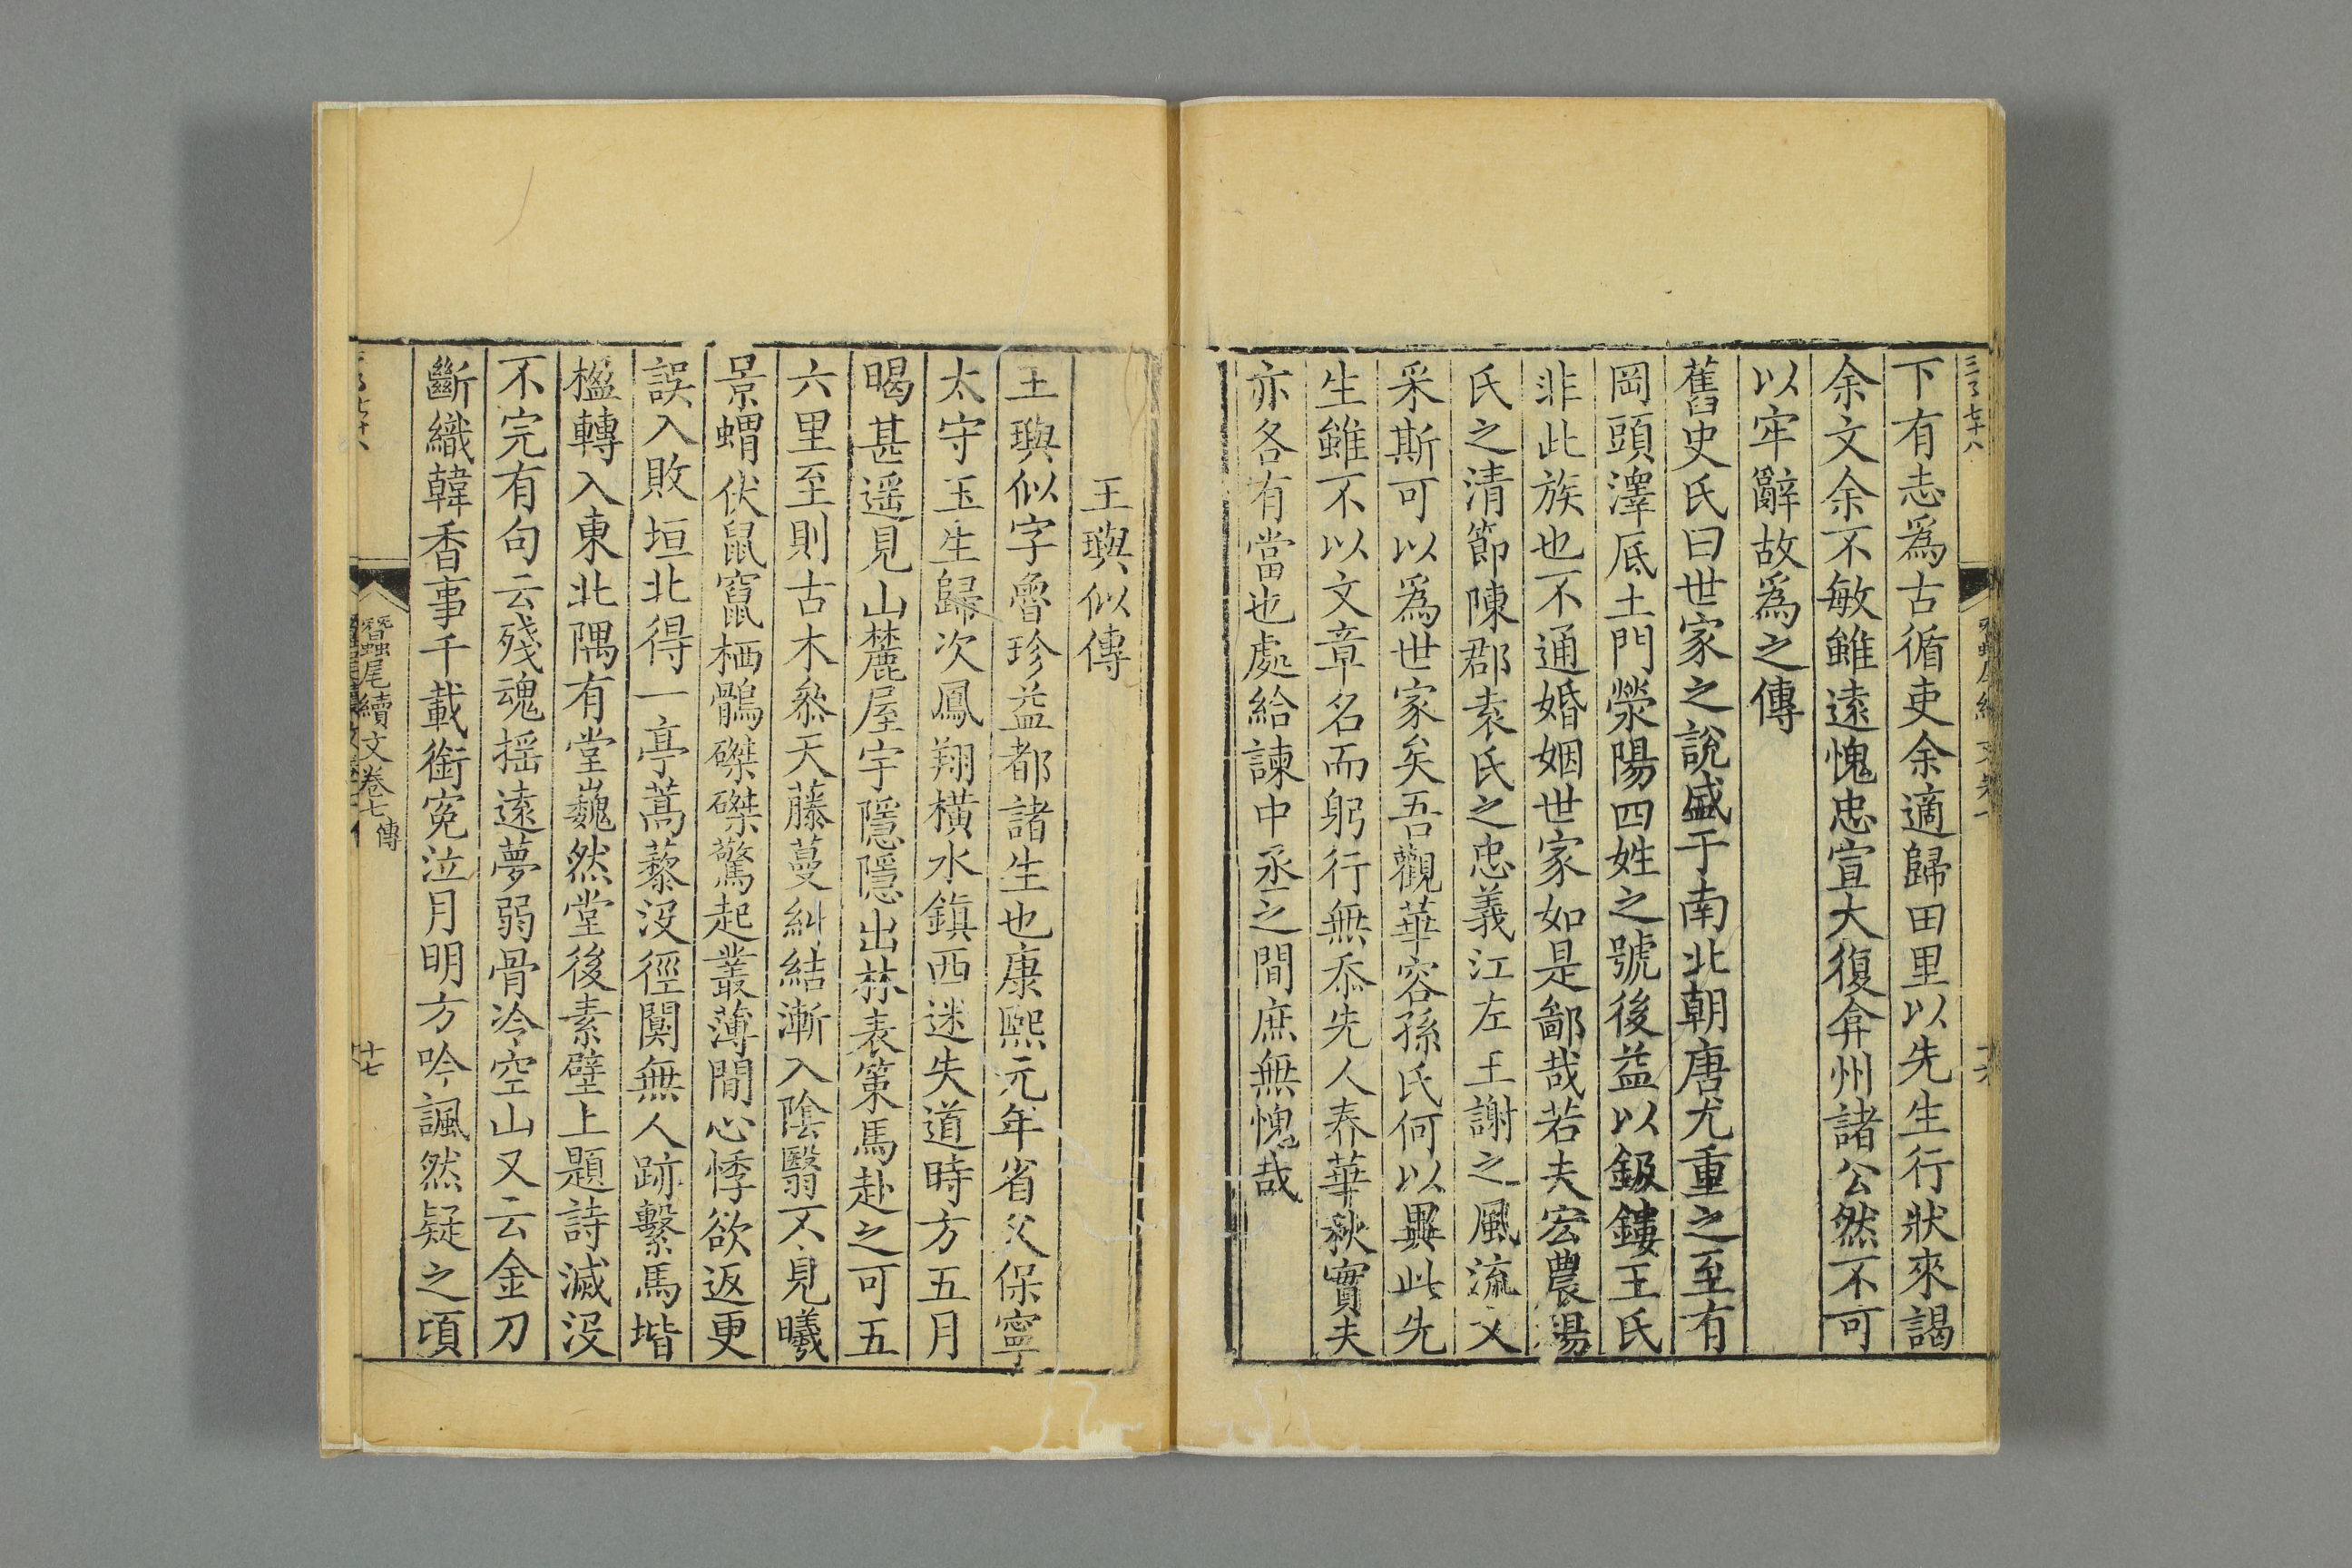 下有志爲古循吏余適歸田里以先生行狀來謁
余文余不敏雖遠愧忠宣大復弇州諸公然不可
以牢辭故爲之傳
舊史氏曰世家之說盛于南北朝唐尤重之至有
岡頭澤底土門滎陽四姓之號後益以鈒鏤王氏
非此族也不通婚姻世家如是鄙哉若夫宏農楊
氏之清節陳郡袁氏之忠義江左王謝之風流文
采斯可以爲世家矣吾觀華容孫氏何以異此先
生雖不以文章名而躬行無忝先人春華秋實夫
亦各有當也處給諫中丞之間庶無愧哉
王璵似傳
王璵似字魯珍益都諸生也康熙元年省父保寧
太守玉生歸次鳳翔橫水鎮西迷失道時方五月
暍甚遥見山麓屋宇隱隱出林表策馬赴之可五
六里至則古木叅天藤蔓糾結漸入陰翳不見曦
景蝟伏鼠竄栖鶻磔磔驚起叢薄間心悸欲返更
誤入敗垣北得一亭蒿藜沒徑闃無人跡繫馬堦
楹轉入東北隅有堂巍然堂後素壁上題詩滅沒
不完有句云殘魂摇遠夢弱骨冷空山又云金刀
斷織韓香事千載銜寃泣月明方吟諷然疑之頃
蠶尾續文卷七 傳
十七